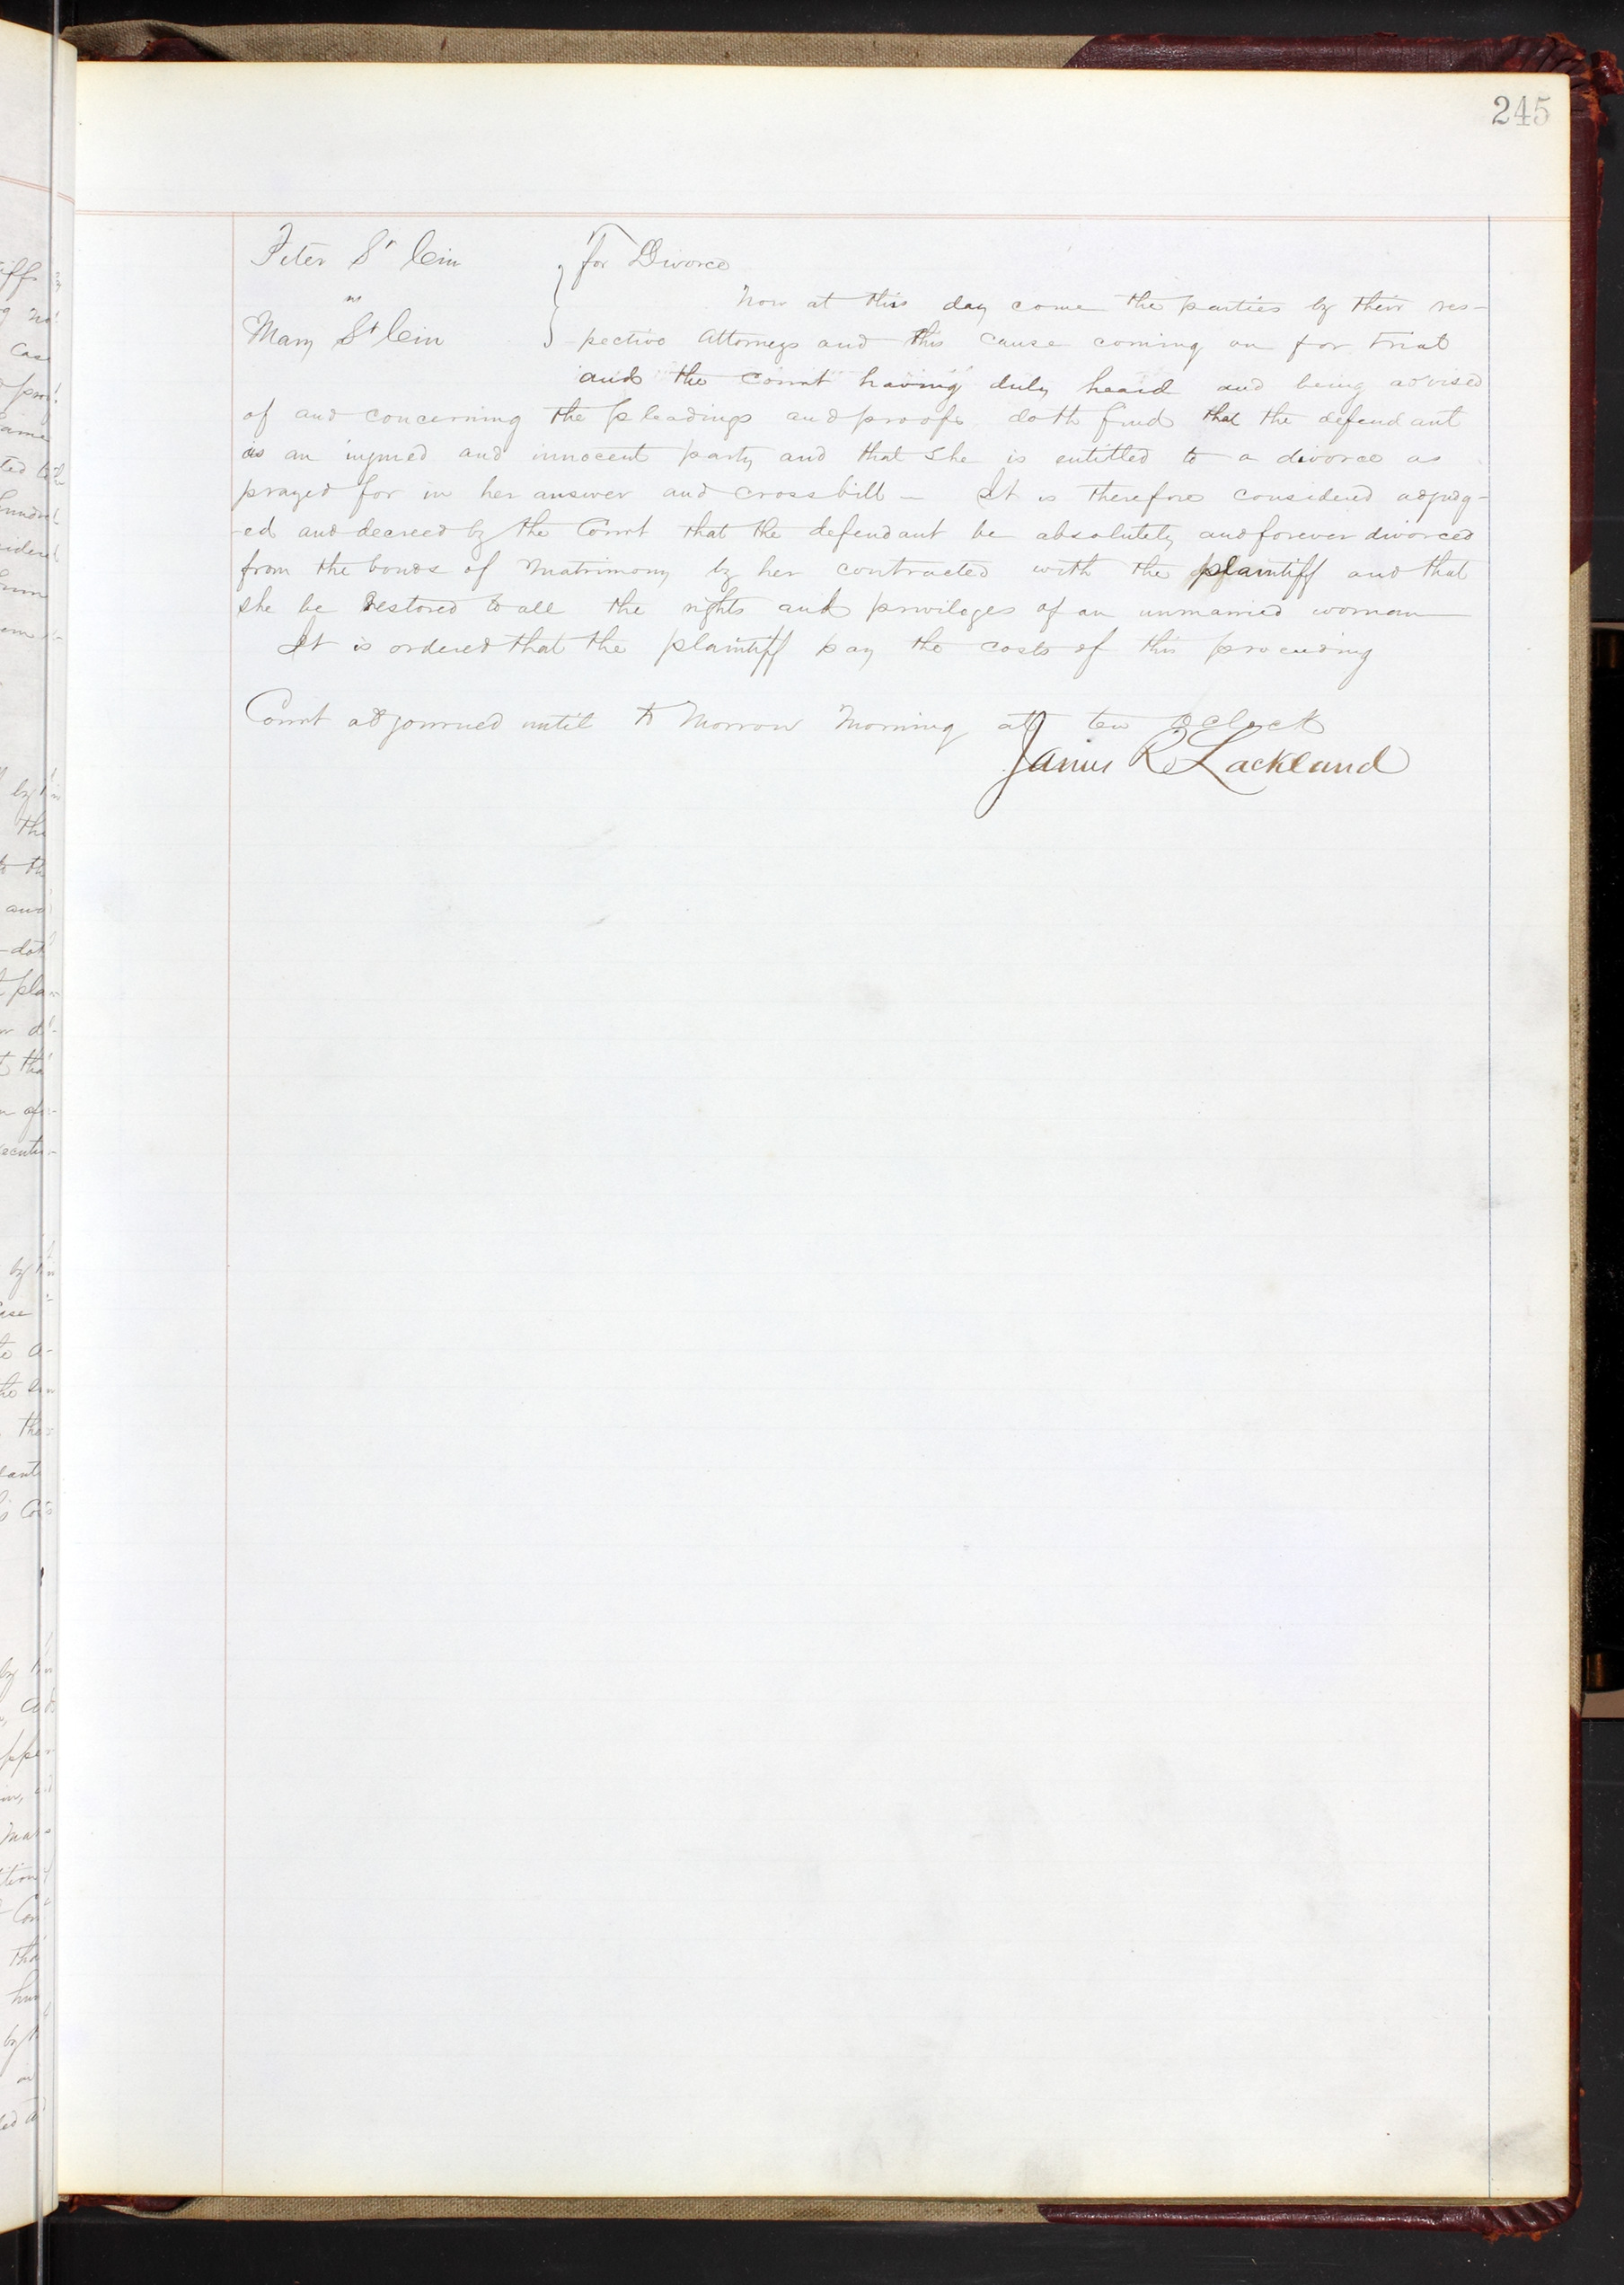 245
Peter St Cin
vs
Mary St Cin
for Divorce
Now at this day come the parties by their res-
pective Attorneys and this cause coming on for trial
and the Court having duly heard and being advised
of and concerning the pleadings and proofs doth find that the defendant
is an injured and innocent party and that she is entitled to a divorce as
prayed for in her answer and crossbill – It is therefore considered adjudg-
-ed and decreed by the Court that the defendant be absolutely and forever divorced
from the bonds of Matrimony by her contracted with the plaintiff and that
she be restored to all the rights and privileges of an unmarried woman
It is ordered that the plaintiff pay the costs of this proceeding
Court adjourned until to Morrow Morning at ten oclock
James R Lackland